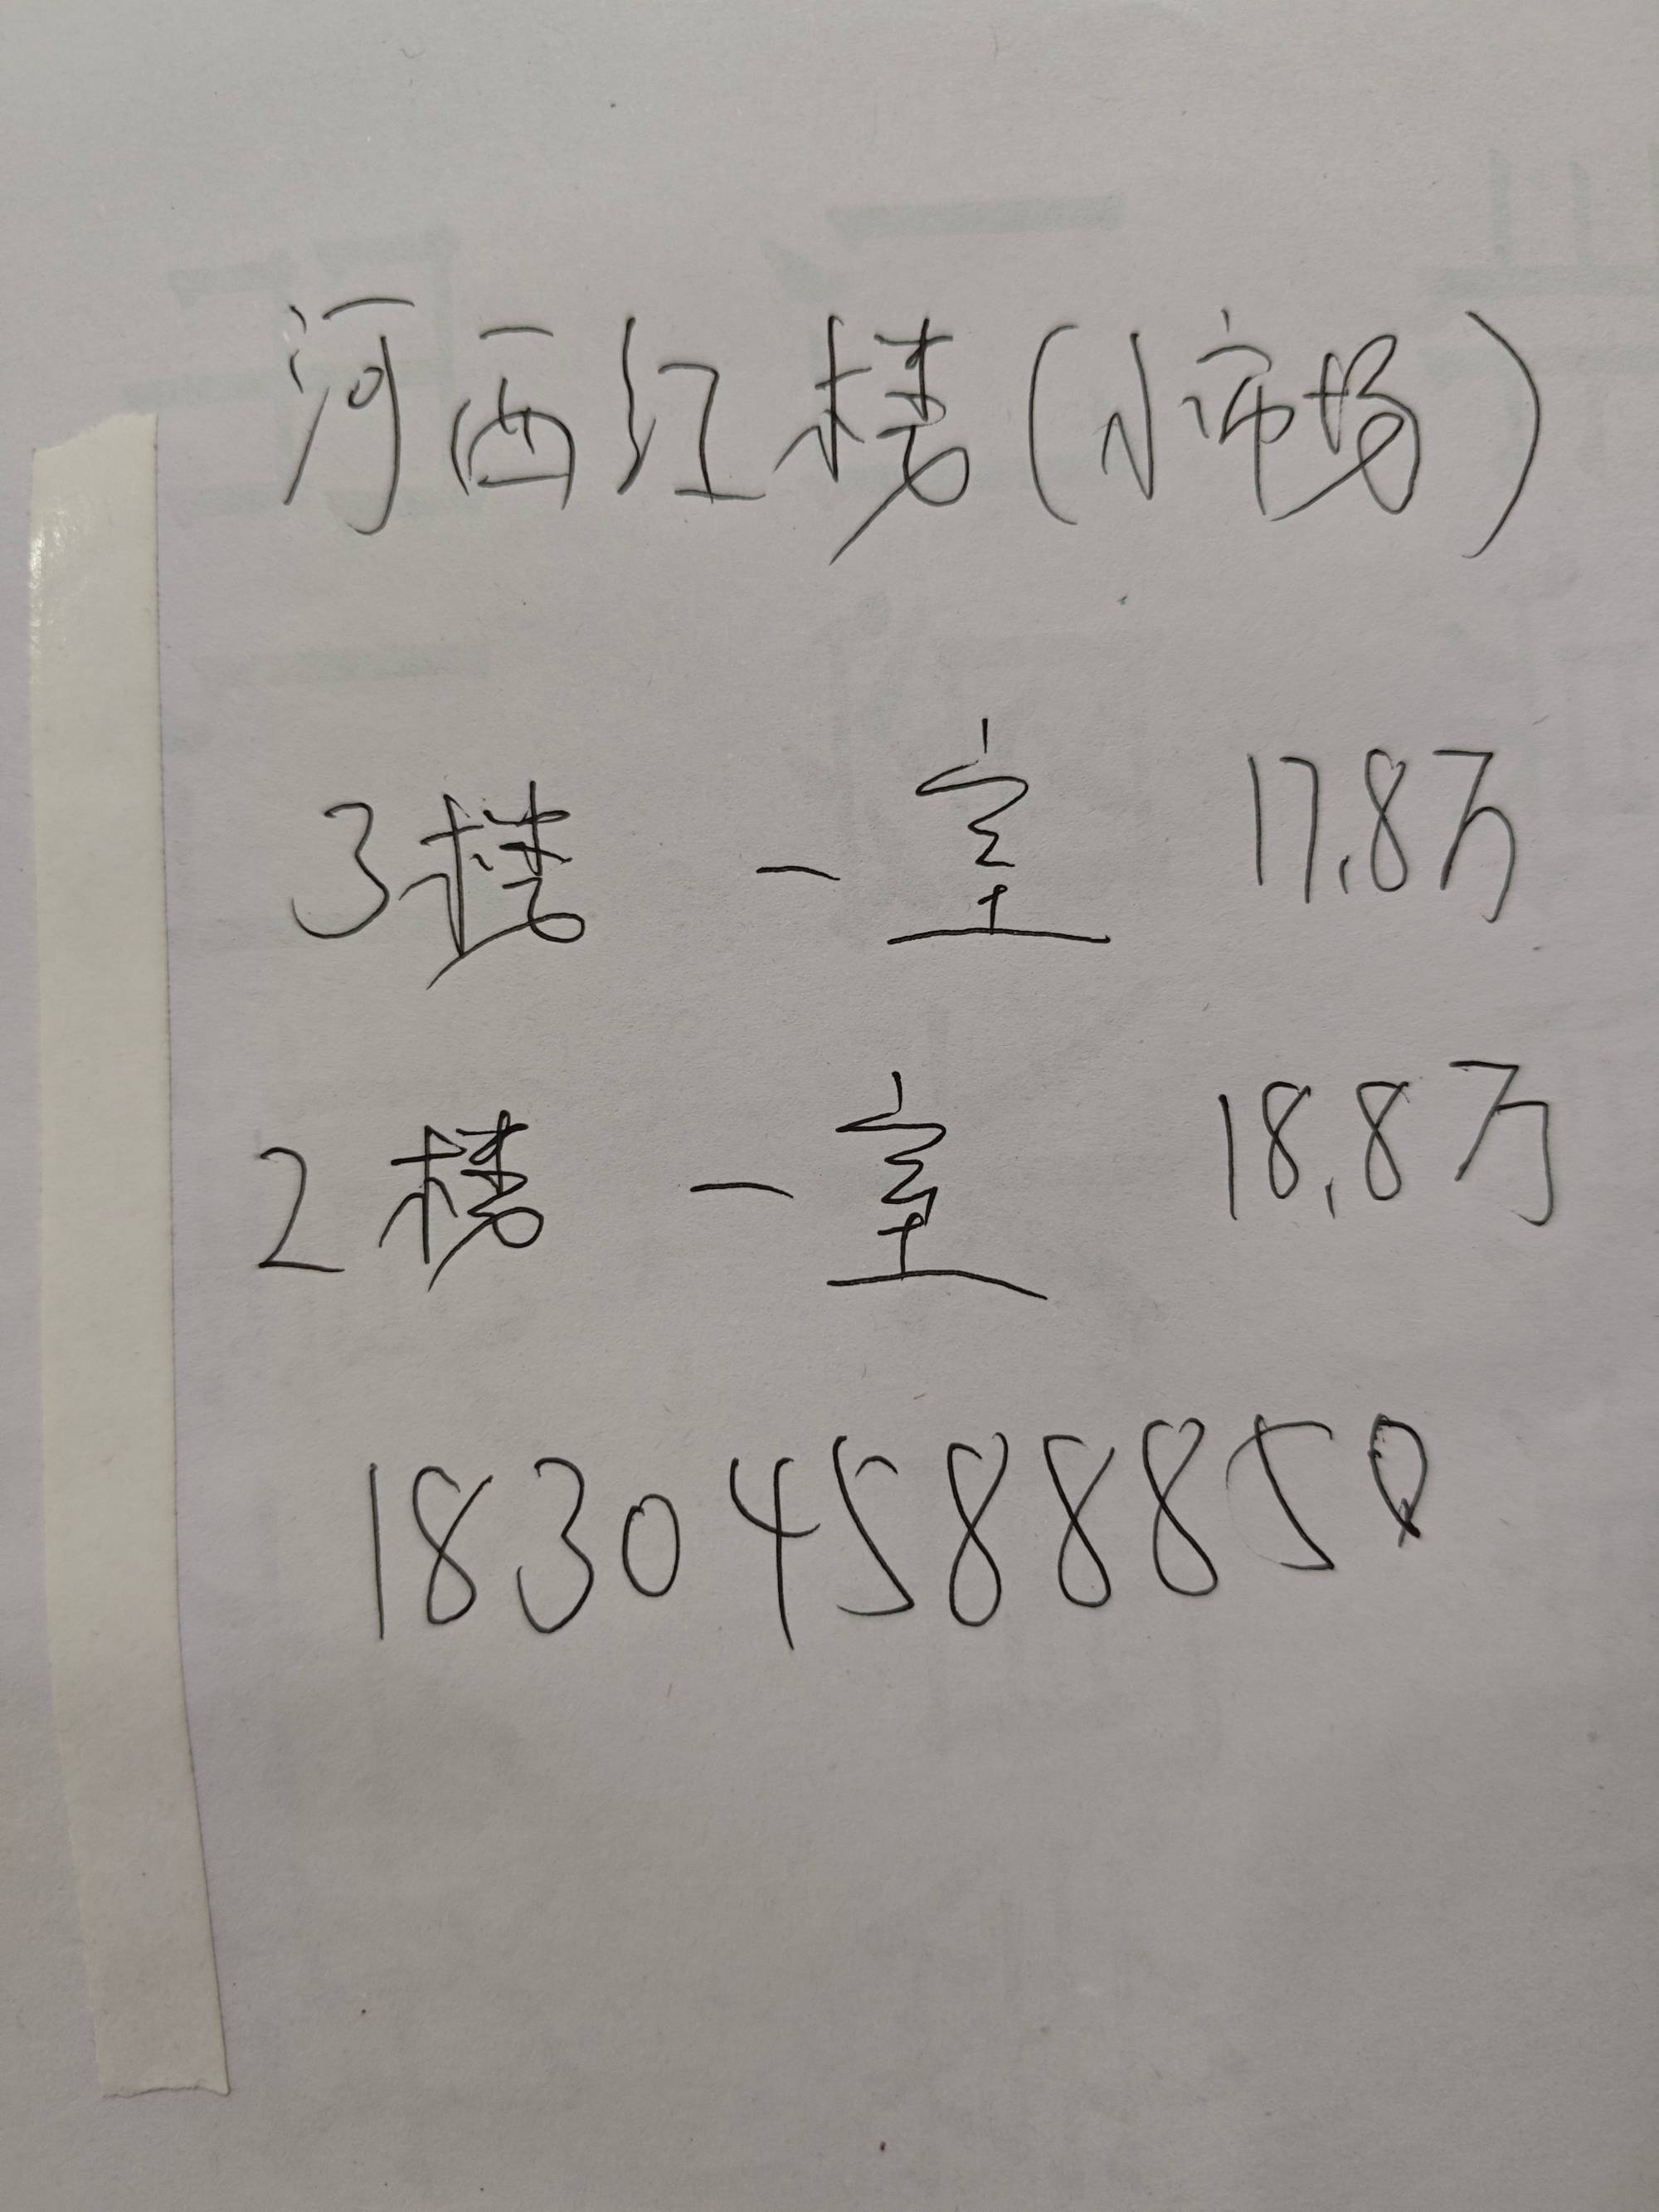 河西红楼(小市场)
3楼 一室 17.8万
2楼 一室 18.8万
18304588850